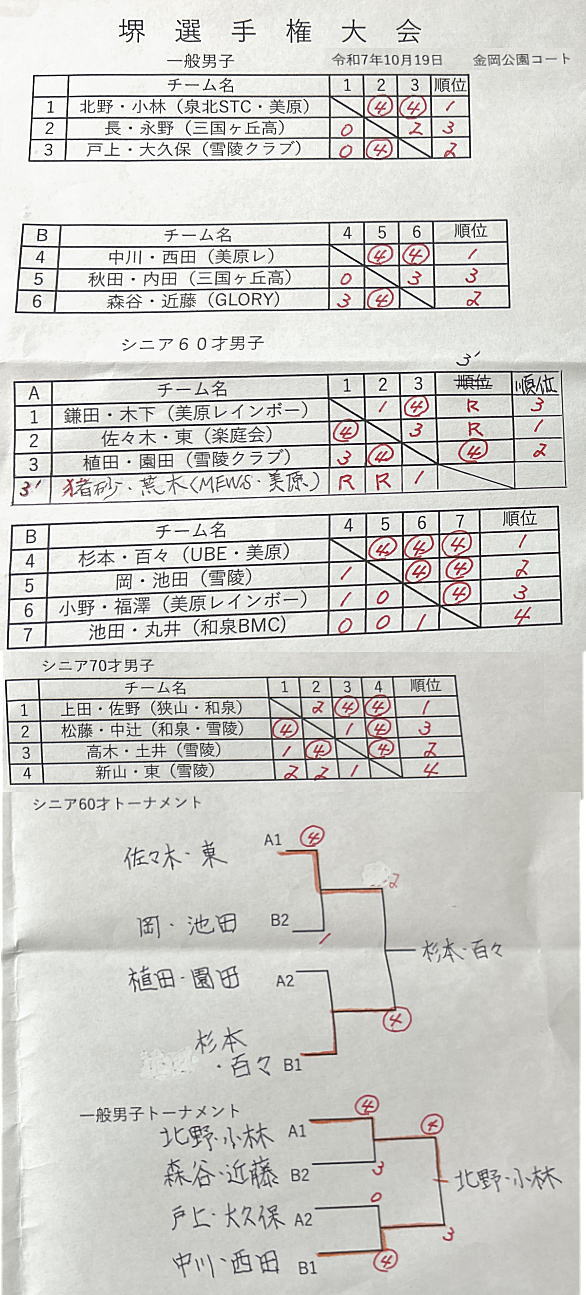 堺選手権大会
一般男子 令和7年10月19日 金岡公園コート
チーム名 1 2 3 順位
1 北野・小林（泉北STC・美原） ④ ④ 1
2 長・永野（三国ヶ丘高） 0 2 3
3 戸上・大久保（雪陵クラブ） 0 ④ 2
B チーム名 4 5 6 順位
4 中川・西田（美原レ） ④ ④ 1
5 秋田・内田（三国ヶ丘高） 0 3 3
6 森谷・近藤（GLORY） 3 ④ 2
シニア６０才男子
3'
A チーム名 1 2 3 順位 順位
1 鎌田・木下（美原レインボー） 1 ④ R 3
2 佐々木・東（楽庭会） ④ 3 R 1
3 植田・園田（雪陵クラブ） 3 ④ ④ 2
3' 猪砂・荒木（MEWS・美原） R R 1
B チーム名 4 5 6 7 順位
4 杉本・百々（UBE・美原） ④ ④ ④ 1
5 岡・池田（雪陵） 1 ④ ④ 2
6 小野・福澤（美原レインボー） 1 0 ④ 3
7 池田・丸井（和泉BMC） 0 0 1 4
シニア70才男子
チーム名 1 2 3 4 順位
1 上田・佐野（狭山・和泉） 2 ④ ④ 1
2 松藤・中辻（和泉・雪陵） ④ 1 ④ 3
3 高木・土井（雪陵） 1 ④ ④ 2
4 新山・東（雪陵） 2 2 1 4
シニア60才トーナメント
佐々木・東 A1 ④
2
岡・池田 B2
1
杉本・百々
植田・園田 A2
④
杉本
・百々 B1
一般男子トーナメント
北野・小林 A1 ④
④
森谷・近藤 B2 3
北野・小林
戸上・大久保 A2 0
3
中川・西田 B1 ④